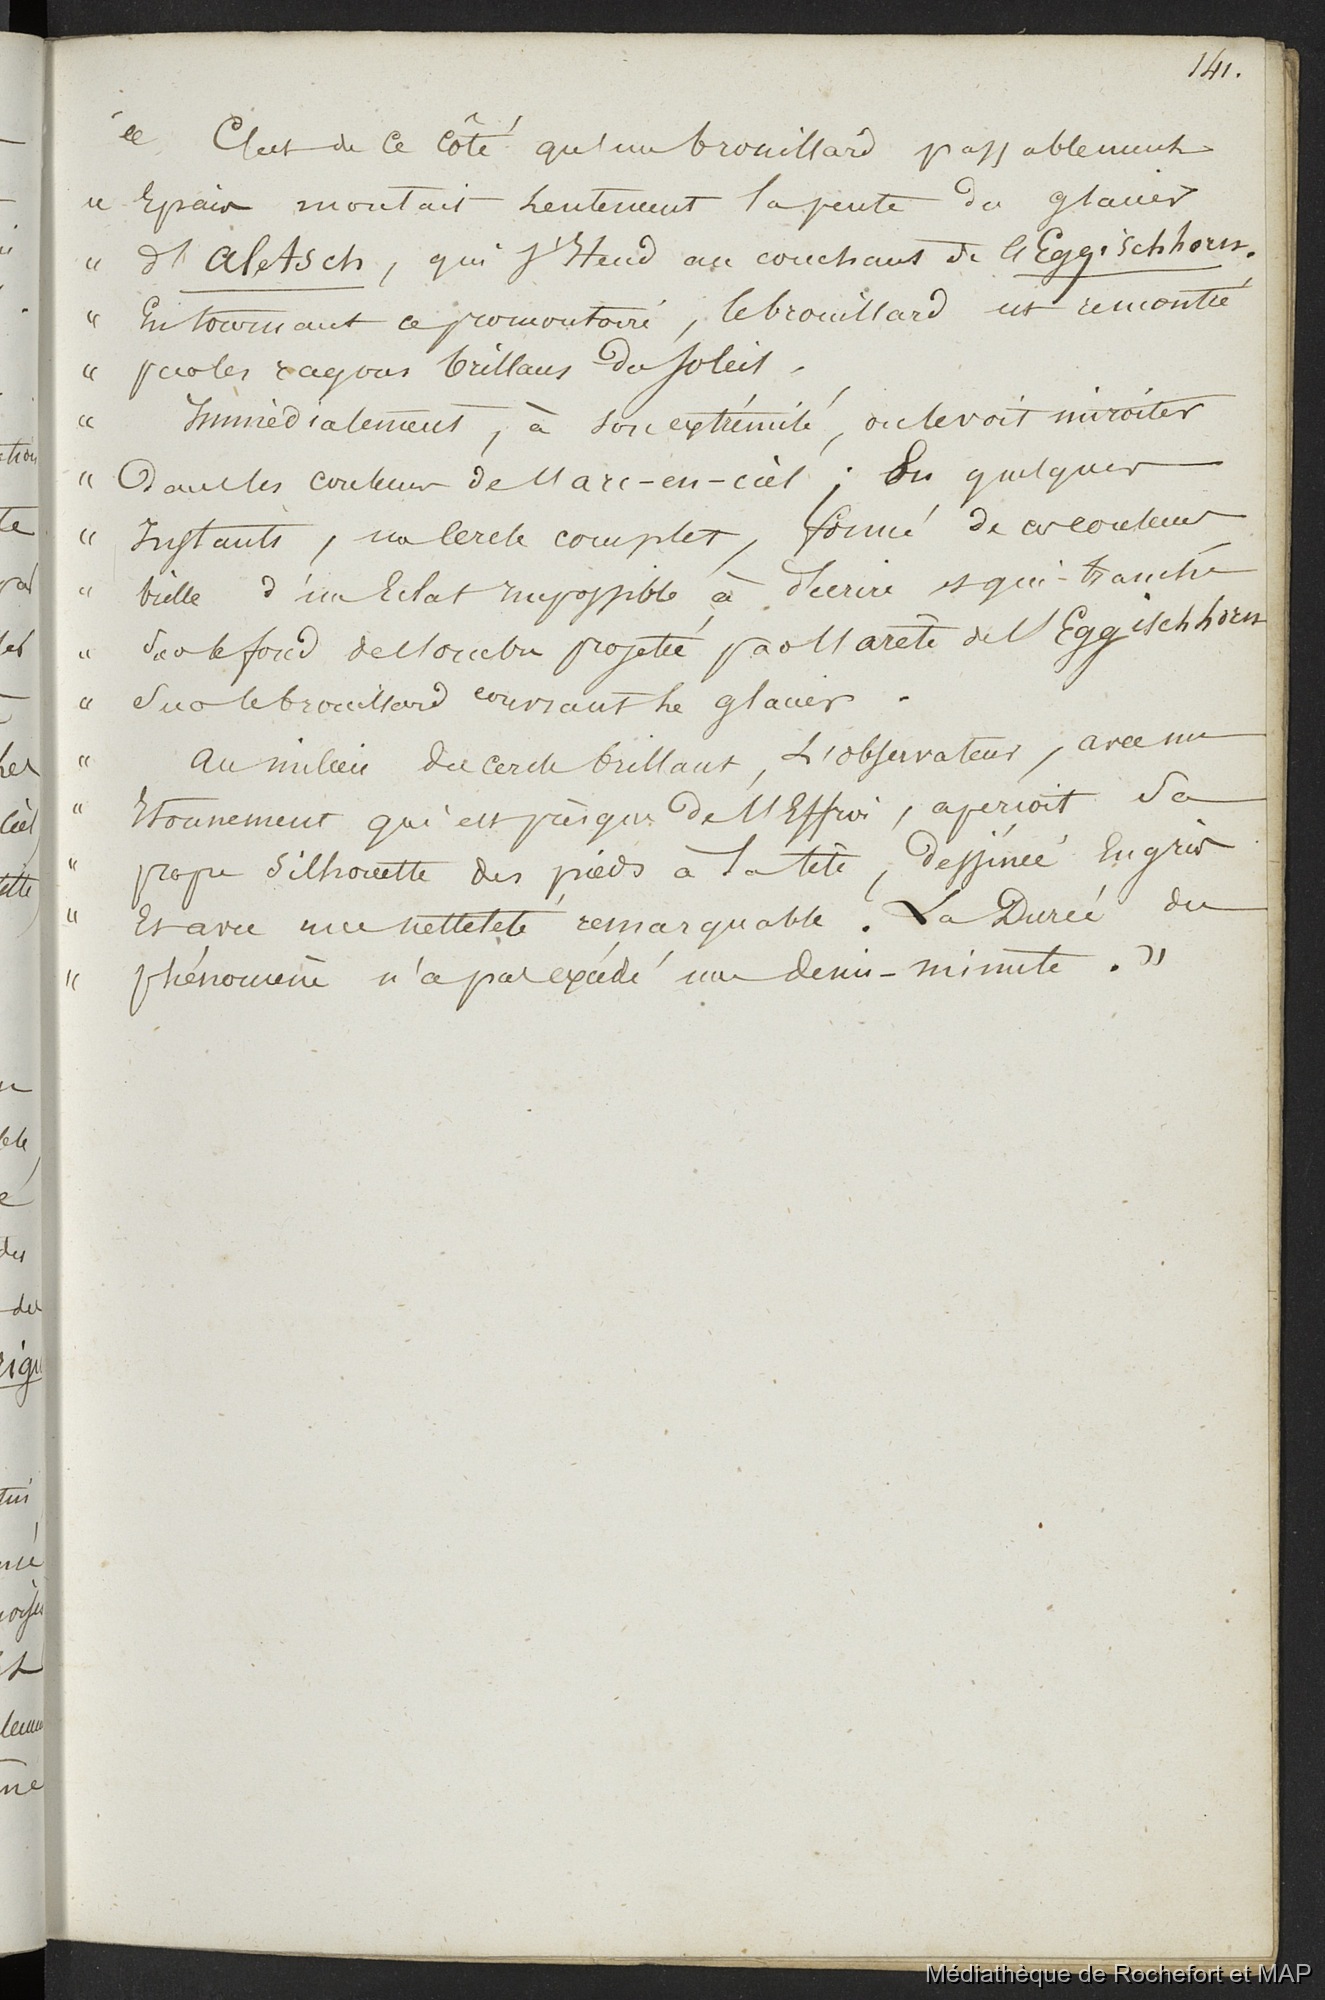 141.
" C'est de ce côté qu'un brouillard passablement
" Epais montait Lentement la pente du glacier
" d'Aletsch, qui s'Etend au couchant de l'Eggischhorn.
" En tournant ce promontoire, le brouillard est remontré
" par les rayons brillans du soleil.
" Immédiatement, à son extrémité, on le voit miroiter
" Dans les couleurs de l'arc-en-ciel ; En quelques
" Instants, un Cercle complet, formé de ces couleurs
" brille d'un Eclat impossible à décrire et qui tranche
" Sur le fond de l'ombre projetée par l'arête de l'Eggischhorn
" Sur le brouillard couvrant Le glacier.
" Au milieu du cercle brillant, L'observateur, avec un
" Etonnement qui est presque De l'Effroi, aperçoit Sa
" propre Silhouette des pieds à la tête, dessinée En gris
" Et avec une netteteté remarquable. La Durée du
" phénomène n'a pas excédé une demi-minute. "
Médiathèque de Rochefort et MAP